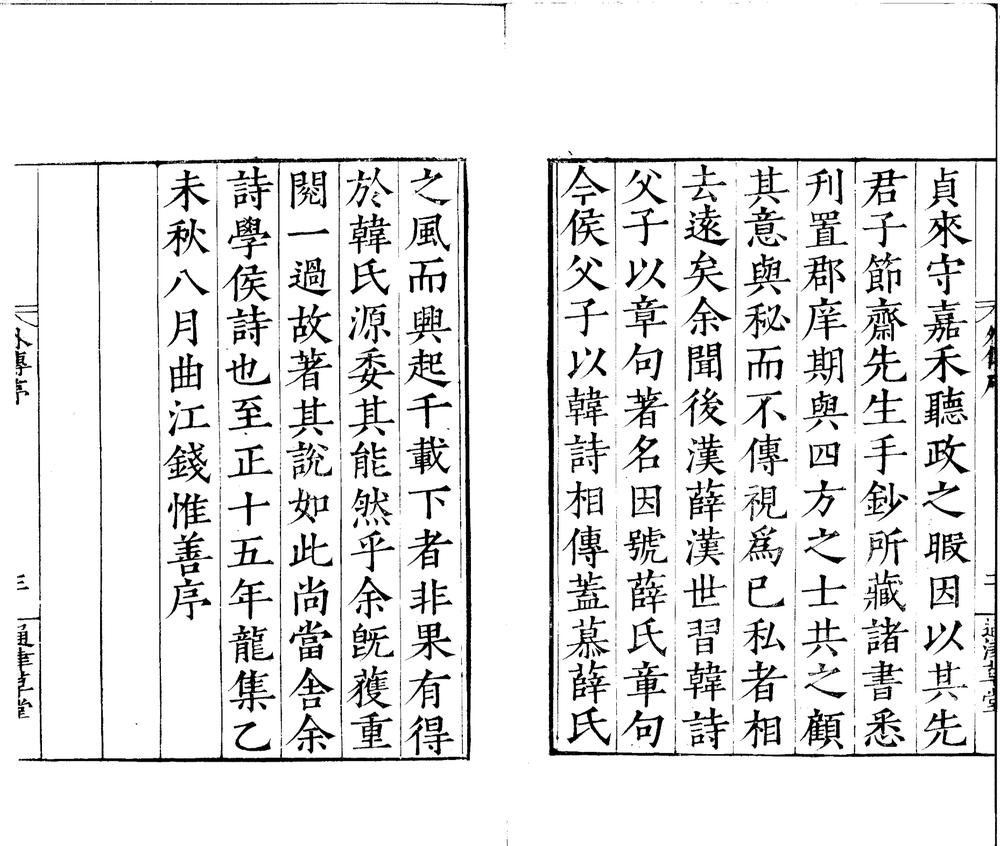 貞來守嘉禾聽政之暇因以其先
君子節齋先生手鈔所藏諸書悉
刋置郡庠期與四方之士共之顧
其意與秘而不傳視爲已私者相
去遠矣余聞後漢薛漢世習韓詩
父子以章句著名因號薛氏章句
今侯父子以韓詩相傳蓋慕薛氏
之風而興起千載下者非果有得
於韓氏源委其能然乎余旣獲重
閱一過故著其說如此尚當舍余
詩學侯詩也至正十五年龍集乙
未秋八月曲江錢惟善序
外傳序
三
通津草堂